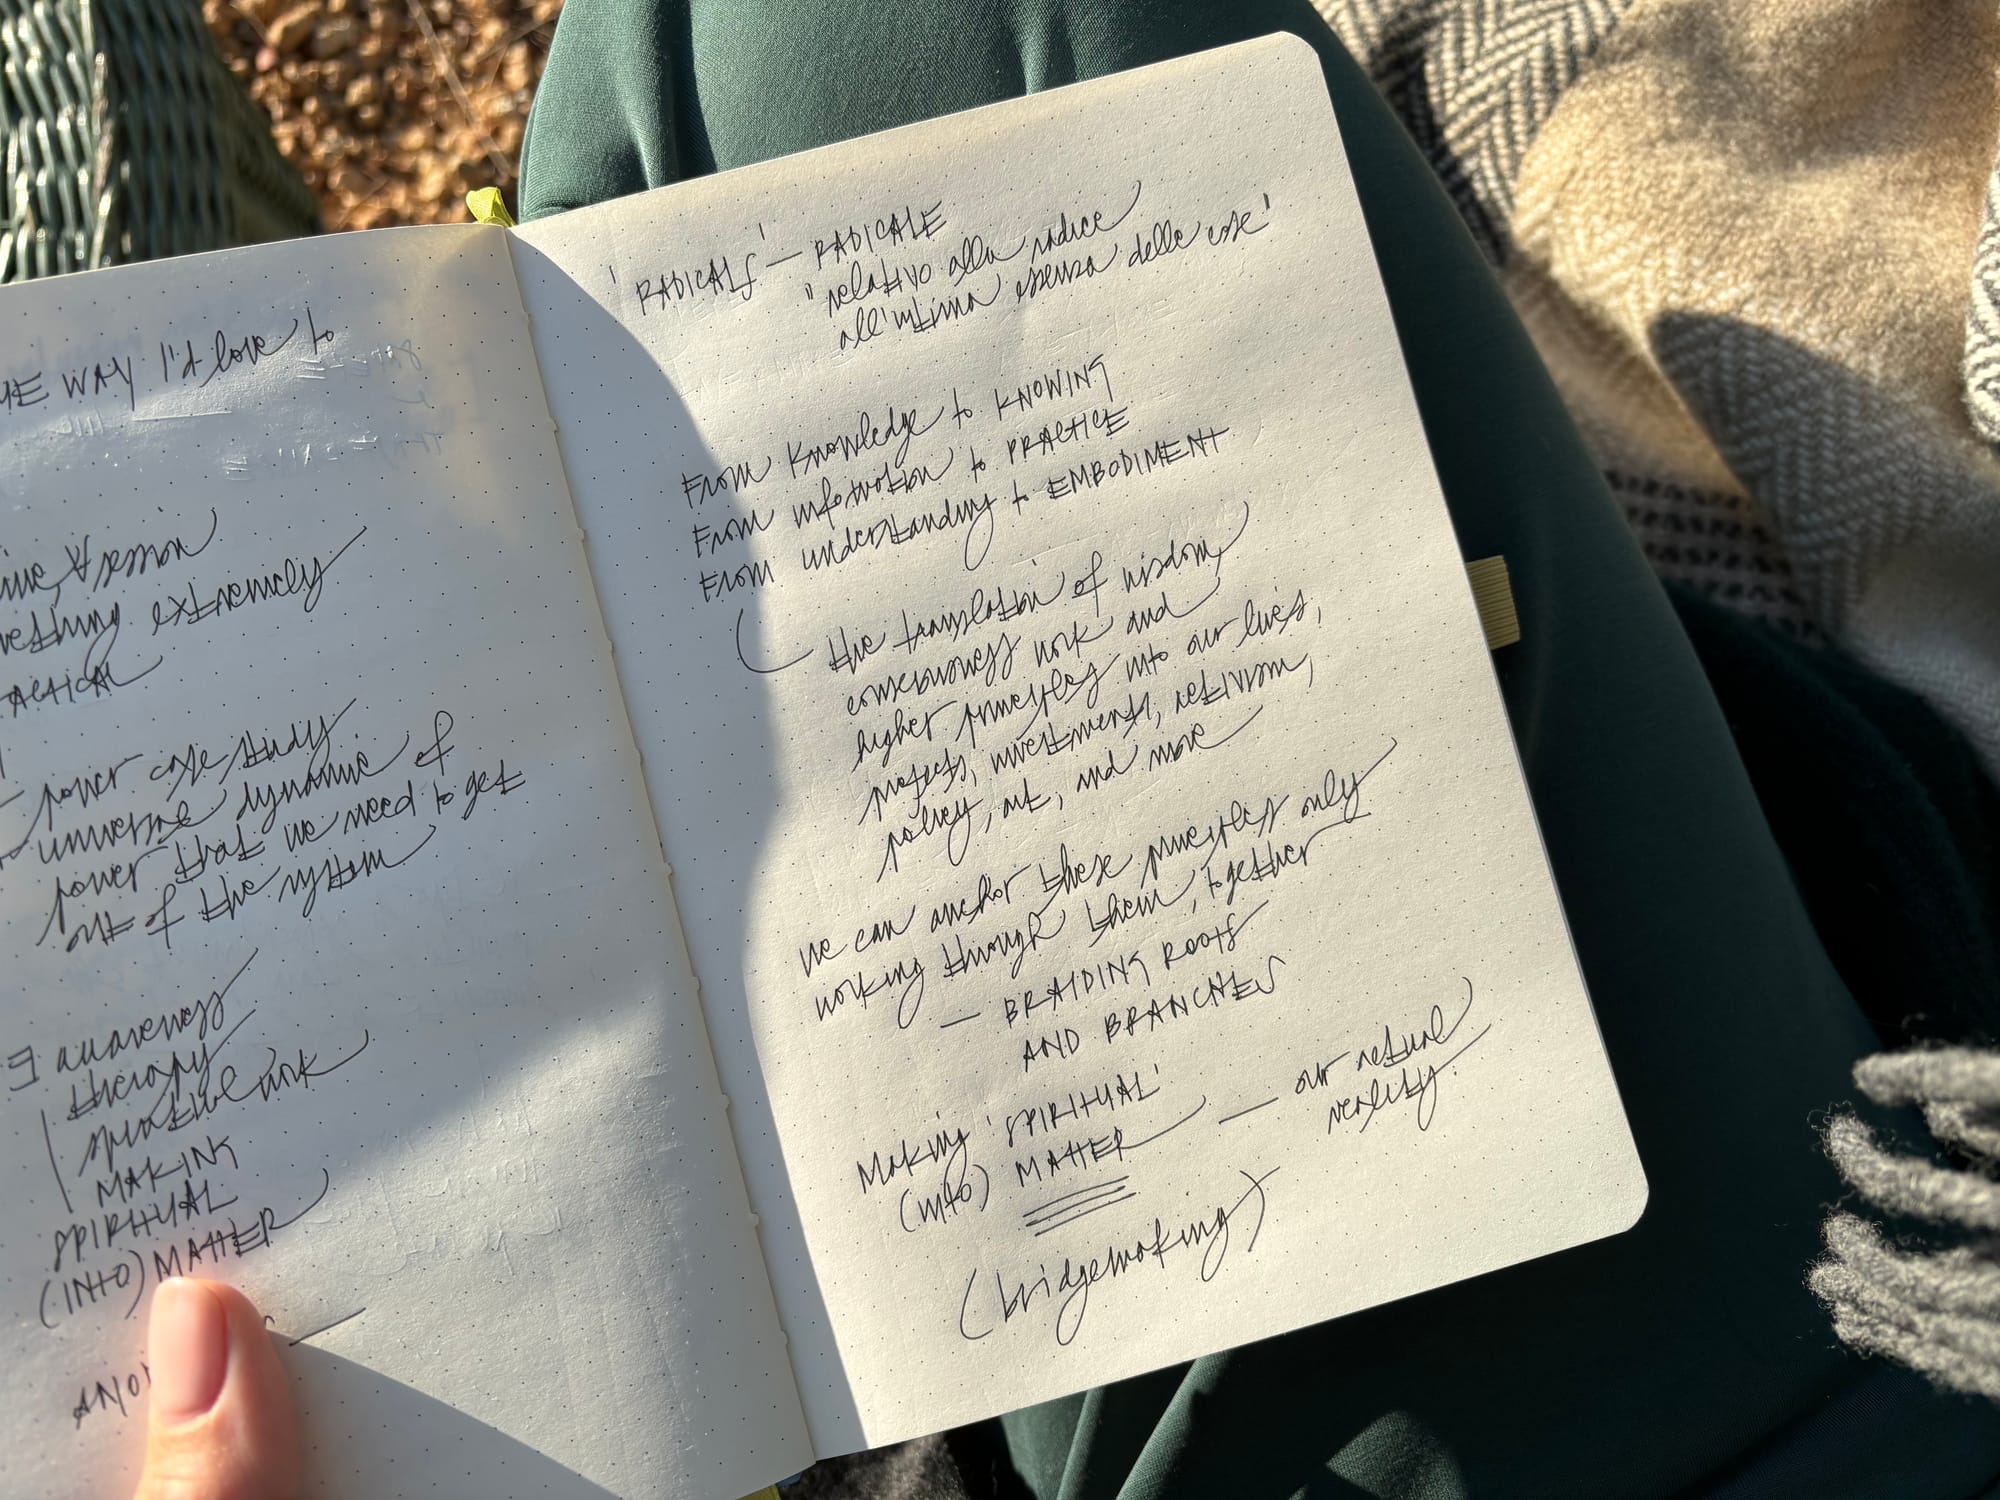 HE WAY I'd love to
session
thing extremely
ACTICAL
— power case study
universal dynamic of
power that we need to get
out of the system
∃ awareness
therapy
spiritual work
MAKING
SPIRITUAL
(INTO) MATTER
ANO
'RADICALS' — RADICALE
"relativo alla radice
all'intima essenza delle cose"
From knowledge to KNOWING
From information to PRACTICE
From understanding to EMBODIMENT
the 'translation' of wisdom,
consciousness work and
higher principles into our lives,
projects, investments, activism,
policy, art, and more
we can anchor these principles only
working through them, together
— BRAIDING ROOTS
AND BRANCHES
Making 'SPIRITUAL'
(into) MATTER — our actual
reality.
(bridgemaking)